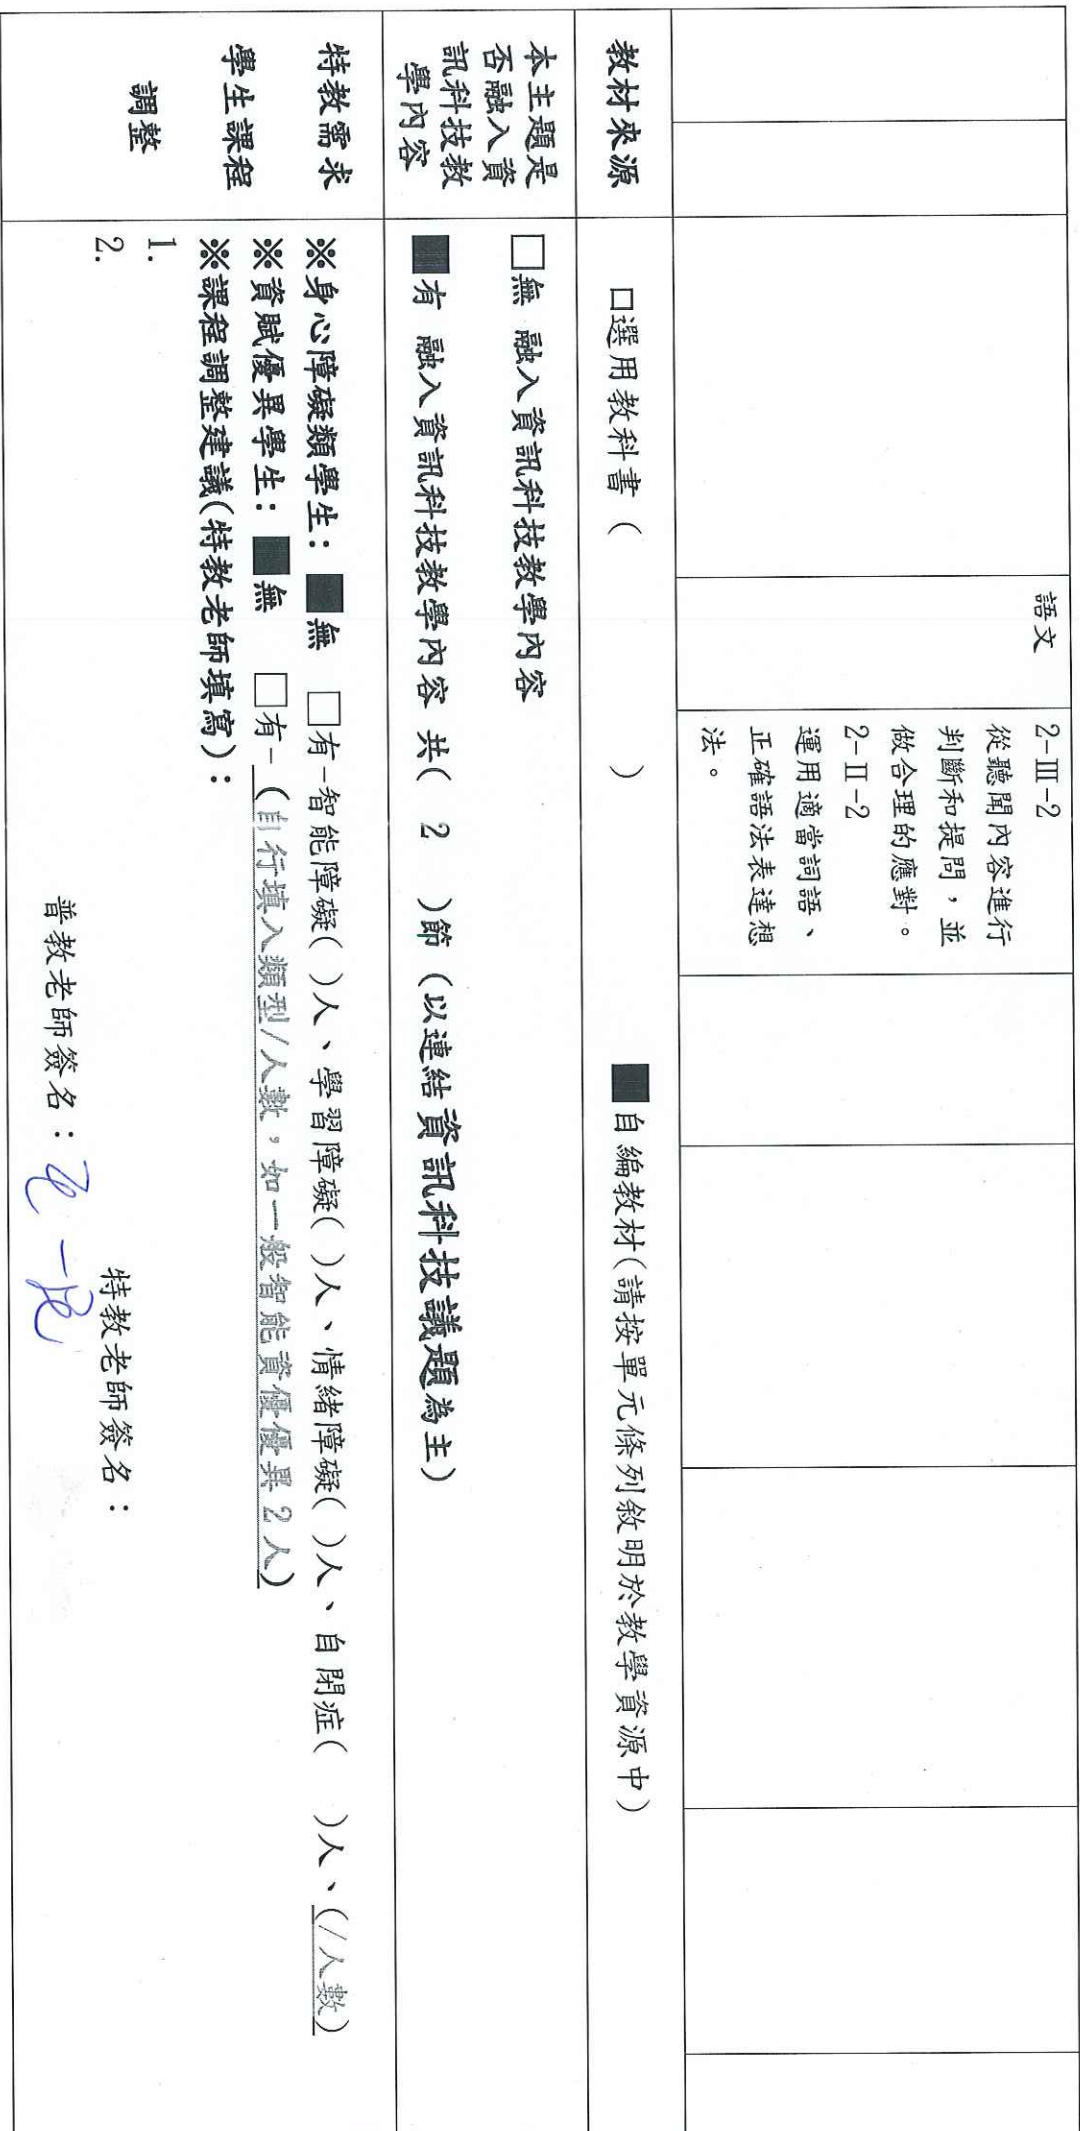 語文
2-Ⅲ-2
從聽聞內容進行
判斷和提問，並
做合理的應對。
2-Ⅱ-2
運用適當詞語、
正確語法表達想
法。
教材來源
□選用教科書（　　　　　　　）　　　　　■自編教材(請按單元條列敘明於教學資源中)
本主題是
否融入資
訊科技教
學內容
□無 融入資訊科技教學內容
■有 融入資訊科技教學內容 共( 2 )節 (以連結資訊科技議題為主)
特教需求
學生課程
調整
※身心障礙類學生: ■無 □有-智能障礙( )人、學習障礙( )人、情緒障礙( )人、自閉症( )人、(/人數)
※資賦優異學生: ■無 □有-(自行填入類型/人數，如一般智能資優優異 2 人)
※課程調整建議(特教老師填寫)：
1.
2.
特教老師簽名：
普教老師簽名：